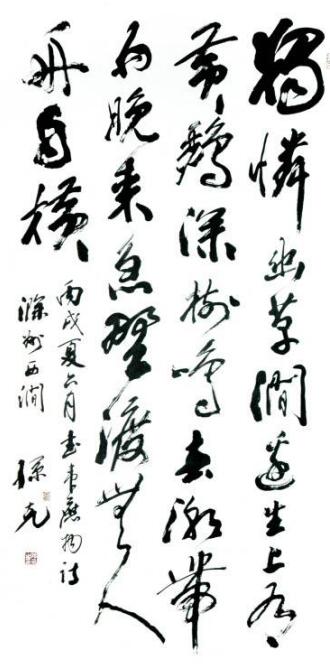 獨憐幽草澗邊生上有
黄鸝深樹鳴春潮帶
雨晚來急野渡無人
舟自横
丙戌夏六月書韋應物詩
滁州西澗 孫克